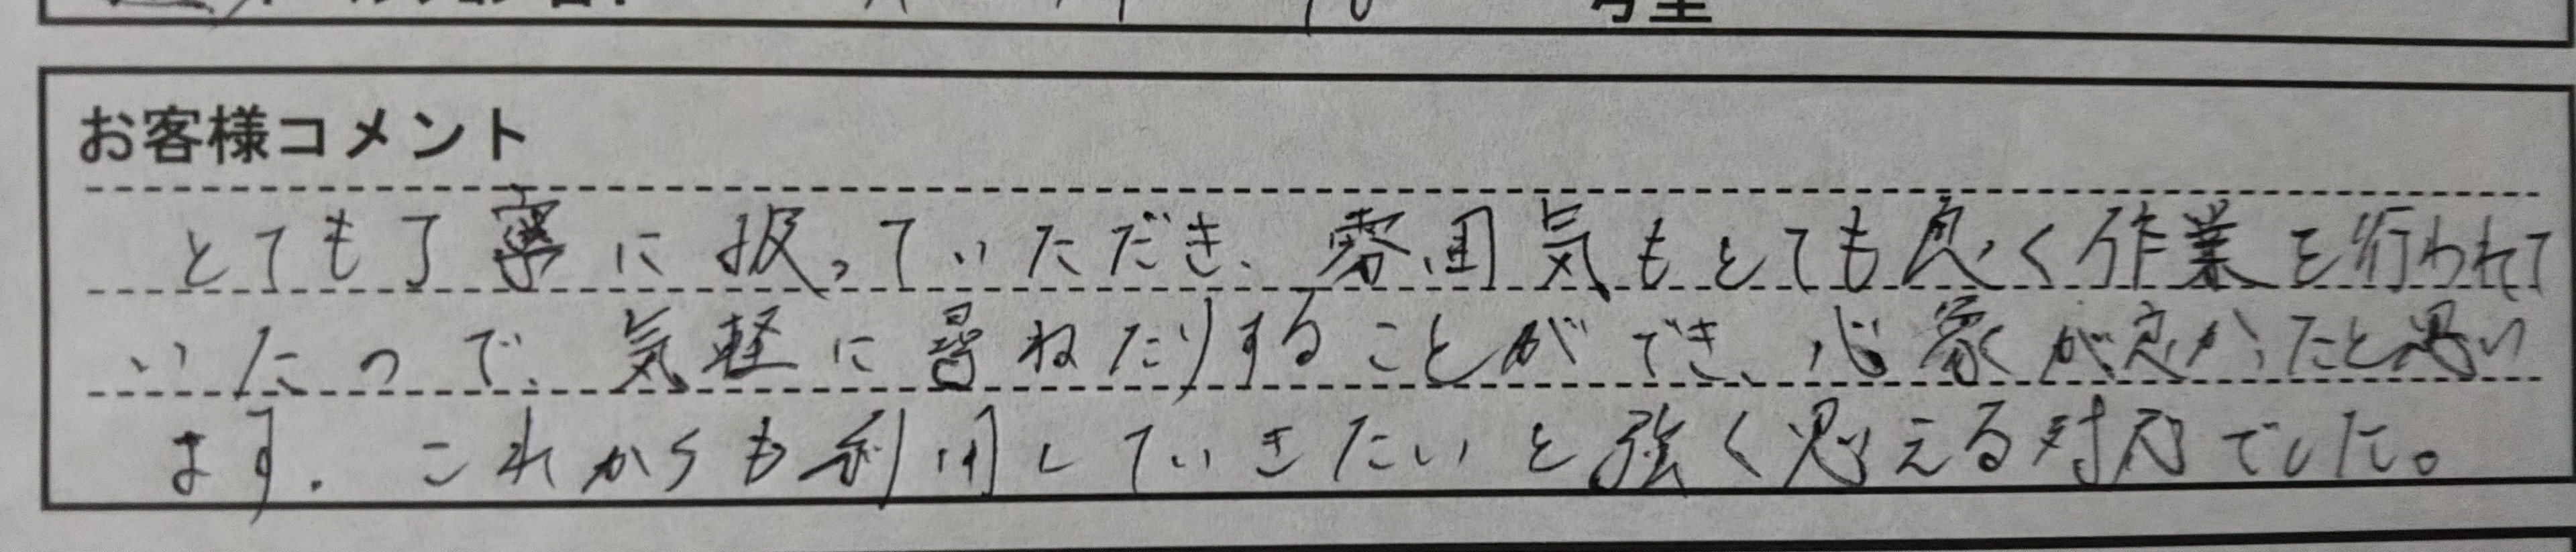 お客様コメント
とても丁寧に扱っていただき、雰囲気もとても良く作業を行われて
いたので、気軽に尋ねたりすることができ、心象が良かったと思い
ます。これからも利用していきたいと強く思える対応でした。